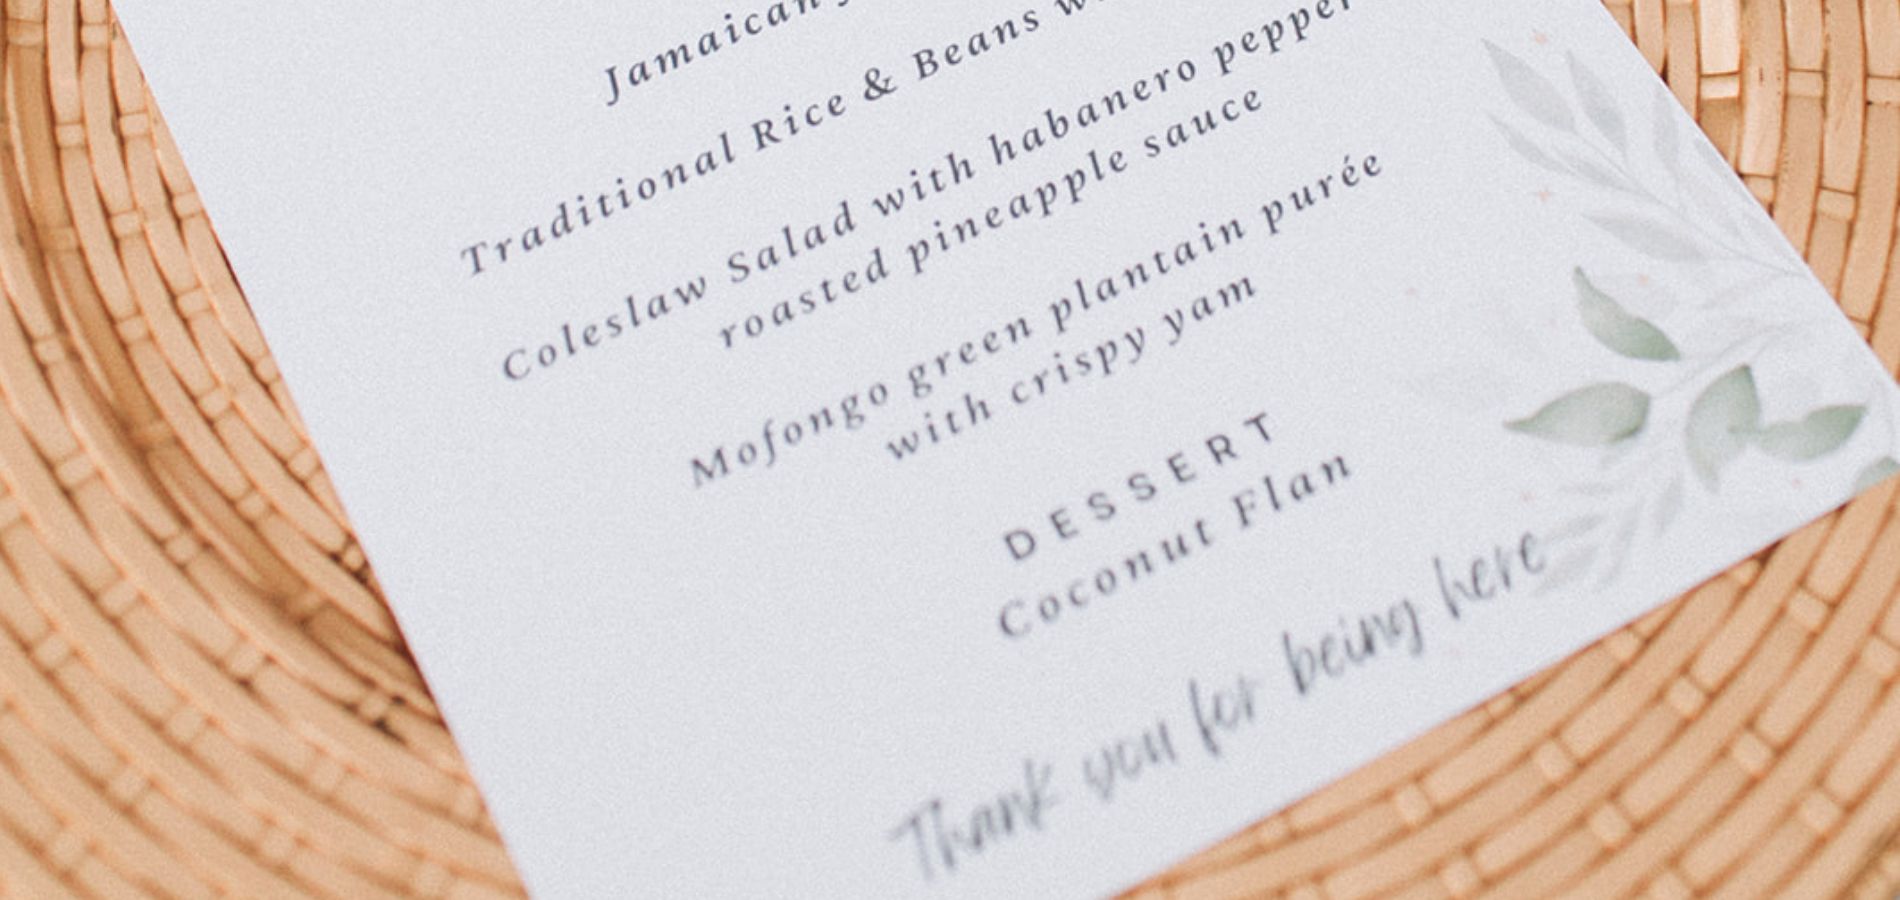 Jamaican
Traditional Rice & Beans
Coleslaw Salad with habanero pepper
roasted pineapple sauce
Mofongo green plantain purée
with crispy yam
DESSERT
Coconut Flan
Thank you for being here